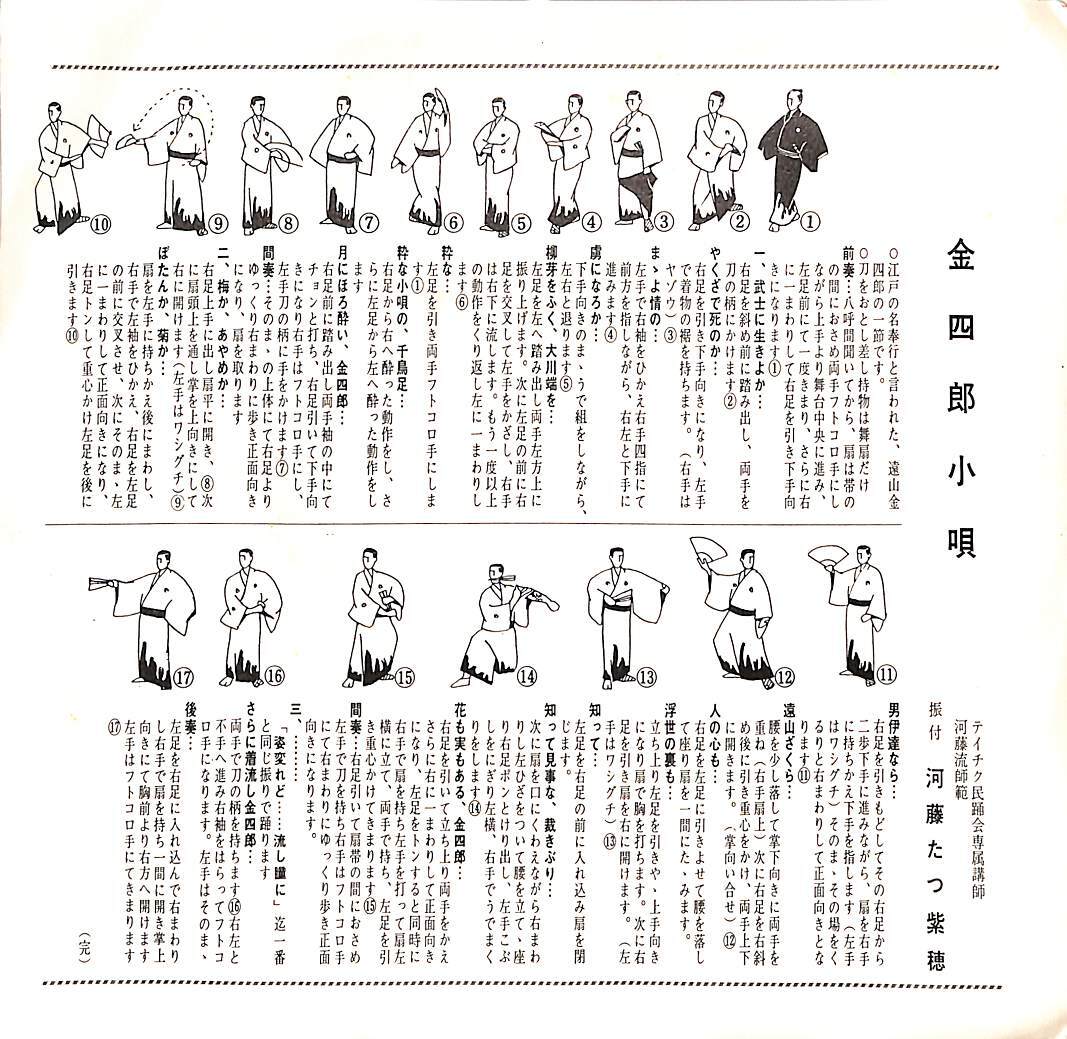 金四郎小唄
テイチク民踊会専属講師
河藤流師範
振付　河藤たつ紫穂
①
②
③
④
⑤
⑥
⑦
⑧
⑨
⑩
〇江戸の名奉行と言われた、遠山金
四郎の一節です。
〇刀をおとし差し持物は舞扇だけ
前奏…八呼間聞いてから、扇は帯の
の間におさめ両手フトコロ手にし
ながら上手より舞台中央に進み、
左足前にて一度きまり、さらに右
に一まわりして右足を引き下手向
きになります①
一、武士に生きよか…
右足を斜め前に踏み出し、両手を
刀の柄にかけます②
やくざで死のか…
右足を引き下手向きになり、左手
で着物の裾を持ちます。（右手は
ヤゾウ）③
まゝよ情の…
左手で右袖をひかえ右手四指にて
前方を指しながら、右左と下手に
進みます④
虜になろか…
下手向きのまゝうで組をしながら、
左右と退ります⑤
柳芽をふく、大川端を…
左足を左へ踏み出し両手左方上に
振り上げます。次に左足の前に右
足を交叉して左手をかざし、右手
は右下に流します。もう一度以上
の動作をくり返し左に一まわりし
ます⑥
粋な…
左足を引き両手フトコロ手にしま
す①
粋な小唄の、千鳥足…
右足から右へ酔った動作をし、さ
らに左足から左へ酔った動作をし
ます
月にほろ酔い、金四郎…
右足前に踏み出し両手袖の中にて
チョンと打ち、右足引いて下手向
きになり右手はフトコロ手にし、
左手刀の柄に手をかけます⑦
間奏…そのまゝの上体にて右足より
ゆっくり右まわりに歩き正面向き
になり、扇を取ります
二、梅か、あやめか…
右足上手に出し扇平に開き、⑧次
に扇頭上を通し掌を上向きにして
右に開けます（左手はワシグチ）⑨
ぼたんか、菊か…
扇を左手に持ちかえ後にまわし、
右手で左袖をひかえ、右足を左足
の前に交叉させ、次にそのまゝ左
に一まわりして正面向きになり、
右足トンして重心かけ左足を後に
引きます⑩
⑪
⑫
⑬
⑭
⑮
⑯
⑰
男伊達なら…
右足を引きもどしてその右足から
二歩下手に進みながら、扇を右手
に持ちかえ下手を指します（左手
はワシグチ）そのまゝその場をく
るりと右に一まわりして正面向きとな
ります⑪
遠山ざくら…
腰を少し落して掌下向きに両手を
重ね（右手扇上）次に右足を右斜
め後に引き重心をかけ、両手上下
に開きます。（掌向い合せ）⑫
人の心も…
右足を左足に引きよせて腰を落し
て座り扇を一間にたゝみます。
浮世の裏も…
立ち上り左足を引きやゝ上手向き
になり扇で胸を打ちます。次に右
足を引き扇を右に開けます。（左
手はワシグチ）⑬
知って…
左足を右足の前に入れ込み扇を閉
じます。
知って見事な、裁きぶり…
次に扇を口にくわえながら右まわ
りし左ひざをついて腰を立て、座
り右足ポンとけり出し、左手こぶ
しをにぎり左横、右手でうでまく
りをします⑭
花も実もある、金四郎…
右足を引いて立ち上り両手をかえ
さらに右に一まわりして正面向き
になり、左足をトンすると同時に
右手で扇を持ち左手を打って扇左
横に立て、両手で持ち、左足を引
き重心かけてきまります⑮
間奏…右足引いて扇帯の間におさめ
左手で刀を持ち右手はフトコロ手
にて右まわりにゆっくり歩き正面
向きになります。
三、………
「姿変れど……流し瞳に」迄一番
と同じ振りで踊ります
さらに着流し金四郎…
両手で刀の柄を持ちます⑯右左と
不手へ進み右袖をはらってフトコ
ロ手になります。左手はそのまゝ
後奏…
左足を右足に入れ込んで右まわり
し右手で扇を持ち一間に開き掌上
向きにて胸前より右方へ開けます
左手はフトコロ手にてきまります
⑰
（完）